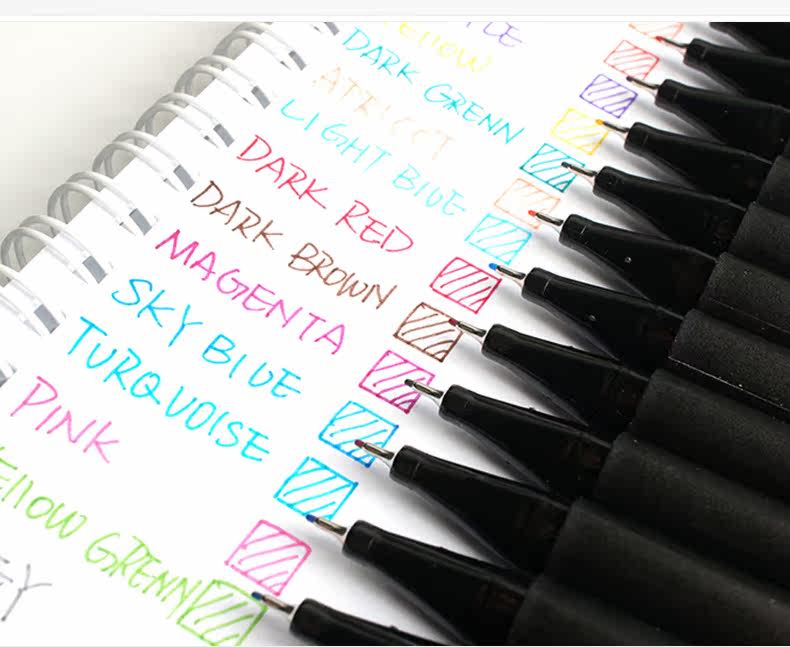 YELLOW
DARK GRENN
APRICOT
LIGHT BLUE
DARK RED
DARK BROWN
MAGENTA
SKY BLUE
TURQUOISE
PINK
YELLOW GRENN